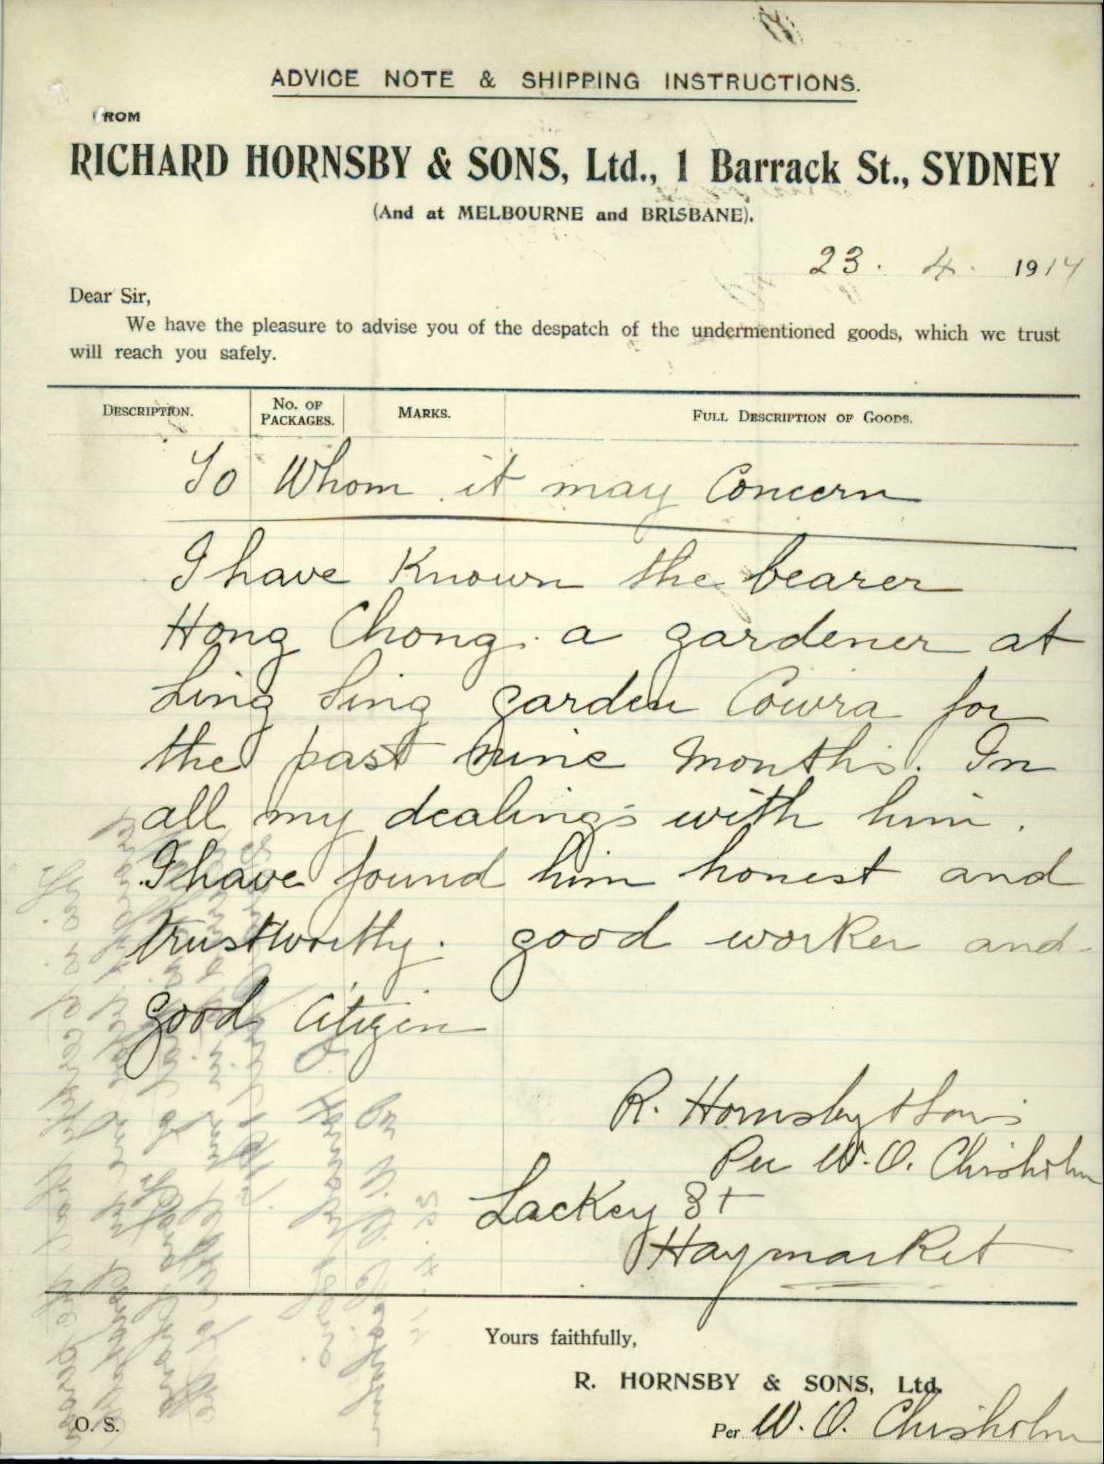 ADVICE NOTE & SHIPPING INSTRUCTIONS.
FROM
RICHARD HORNSBY & SONS, Ltd., 1 Barrack St., SYDNEY
(And at MELBOURNE and BRISBANE).
23. 4. 1914
Dear Sir,
We have the pleasure to advise you of the despatch of the undermentioned goods, which we trust
will reach you safely.
DESCRIPTION. No. OF PACKAGES. MARKS. FULL DESCRIPTION OF GOODS.
To Whom it may Concern
I have Known the bearer
Hong Chong. a gardener at
Sing garden Cowra for
the past nine Months. In
all my dealings with him.
I have found him honest and
trustworthy. good worker and
good Citizen
R. Hornsby & Sons
Per W. O. Chisholm
Lackey St
Haymarket
Yours faithfully,
R. HORNSBY & SONS, Ltd.
Per W. O. Chisholm
O. S.